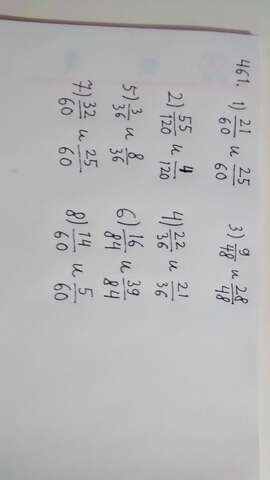 461. 1) 21/60 и 25/60 3) 9/48 и 28/48
2) 55/120 и 4/120 4) 22/36 и 21/36
5) 3/36 и 8/36 6) 16/84 и 39/84
7) 32/60 и 25/60 8) 14/60 и 5/60